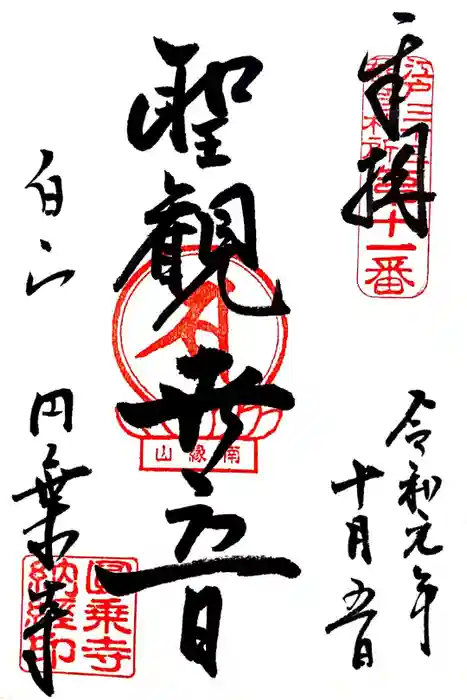 奉拝
江戸三十三観音札所第十一番
令和元年
十月五日
聖観世音
南縁山
白山
円乗寺
圓乗寺
納経印